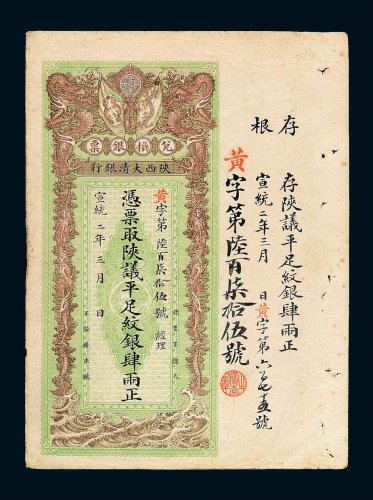 存根
存陝議平足紋銀肆兩正
宣統二年三月 日黃字第六百七十五號
黃字第陸百柒拾伍號
票銀換兌
行銀清大西陝
黃字第陸百柒拾伍號 經理
憑票取陝議平足紋銀肆兩正
宣統二年三月 日